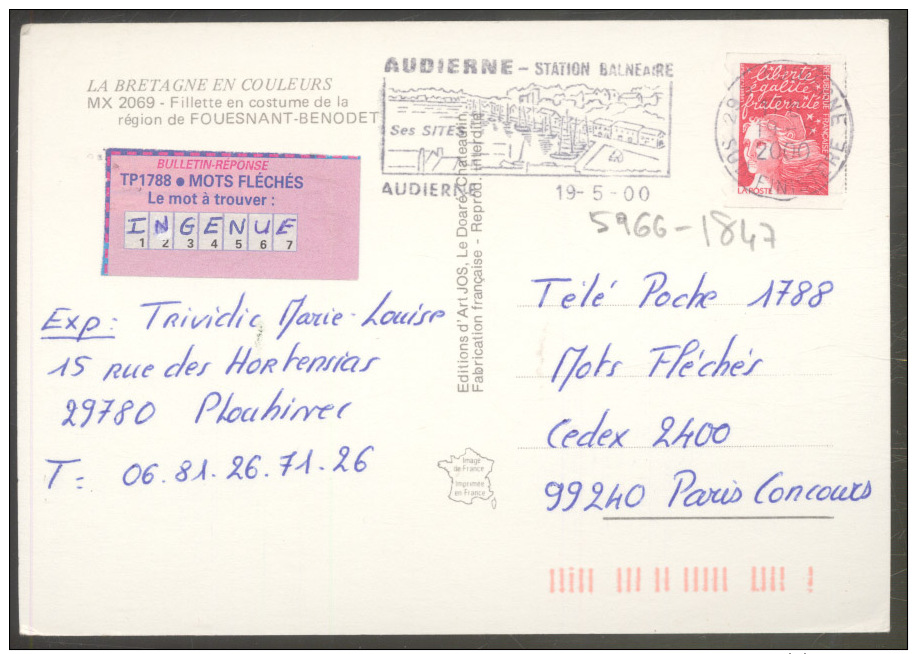 LA BRETAGNE EN COULEURS
MX 2069 - Fillette en costume de la
région de FOUESNANT-BENODET
BULLETIN-RÉPONSE
TP1788 ● MOTS FLÉCHÉS
Le mot à trouver :
I N G E N U E
1 2 3 4 5 6 7
Exp: Trividic Marie-Louise
15 Rue des Hortensias
29780 Plouhinec
T: 06.81.26.71.26
AUDIERNE - STATION BALNEAIRE
Ses SITES
AUDIERNE
19-5-00
Editions d'Art JOS, Le Doaré, Chateaulin
Fabrication française - Reprod. interdite
Image
de France
Imprimée
en France
liberté
égalité
fraternité
RÉPUBLIQUE FRANÇAISE
LA POSTE
29
2000
5966-1847
Télé Poche 1788
Mots Fléchés
Cedex 2400
99240 Paris Concours